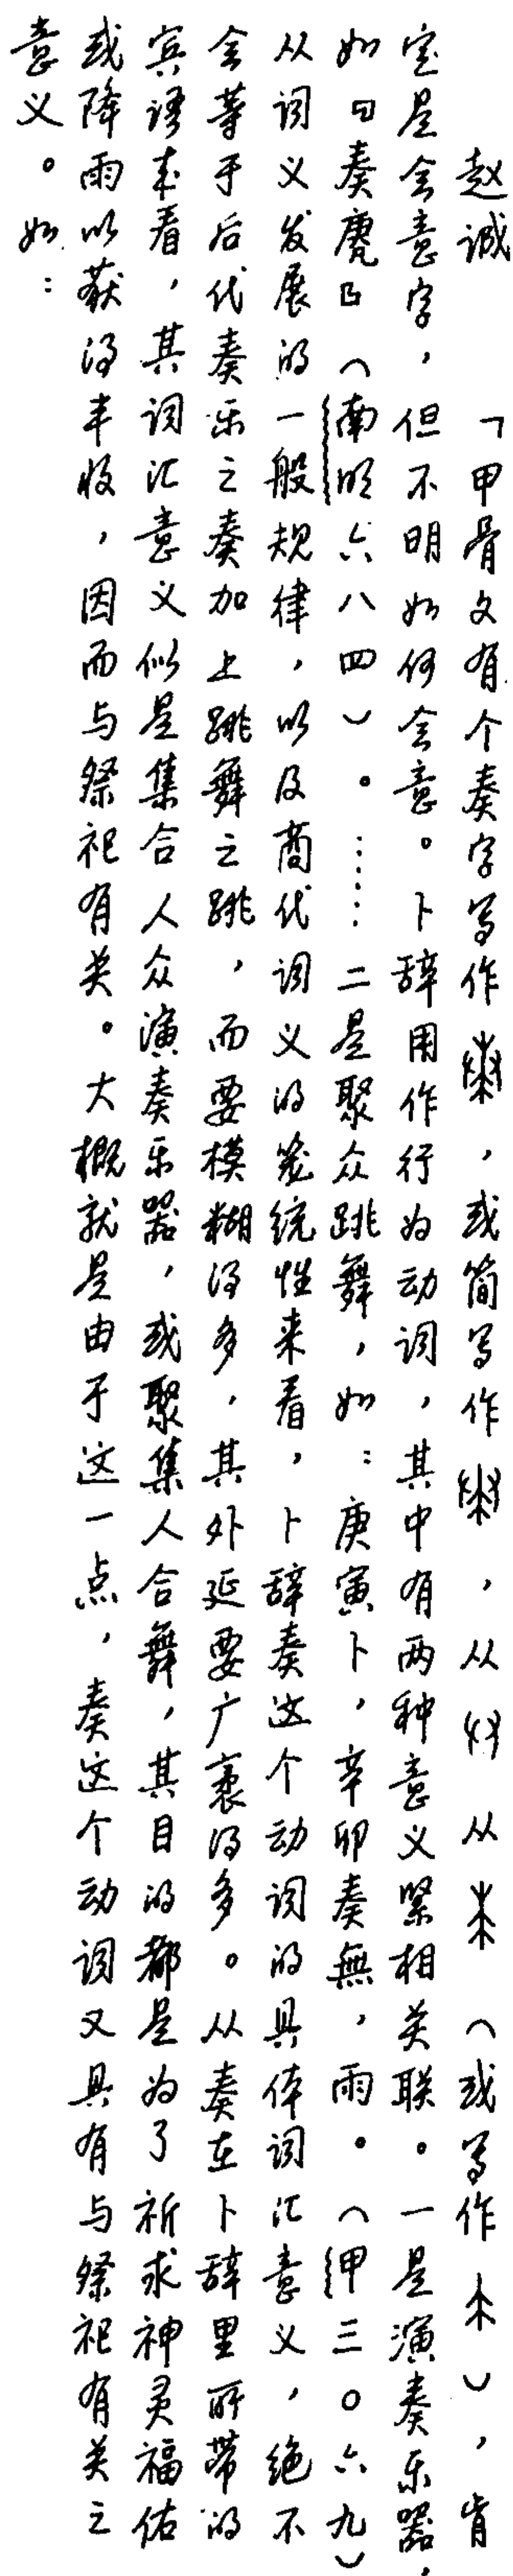 赵诚　「甲骨文有个奏字写作，或简写作，从从（或写作），肯
定是会意字，但不明如何会意。卜辞用作行为动词，其中有两种意义紧相关联。一是演奏乐器，
如曰奏⿸庸（南明六八四）。……二是聚众跳舞，如：庚寅卜，辛卯奏無，雨。（甲三〇六九）
从词义发展的一般规律，以及商代词义的笼统性来看，卜辞奏这个动词的具体词汇意义，绝不
会等于后代奏乐之奏加上跳舞之跳，而要模糊得多，其外延要广袤得多。从奏在卜辞里所带的
宾语来看，其词汇意义似是集合人众演奏乐器，或聚集人合舞，其目的都是为了祈求神灵福佑
或降雨以获得丰收，因而与祭祀有关。大概就是由于这一点，奏这个动词又具有与祭祀有关之
意义。如：